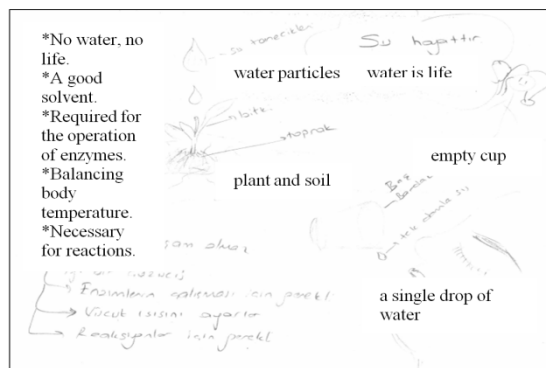 *No water, no
life.
*A good
solvent.
*Required for
the operation
of enzymes.
*Balancing
body
temperature.
*Necessary
for reactions.
su tanecikleri
Su hayattır
water particles
water is life
bitki
toprak
plant and soil
empty cup
Boş
Bardak
tek damla su
olmaz
Enzimlerin çalışması için gerekli
Vücut ısısını ayarlar
Reaksiyonlar için gerekli
a single drop of
water